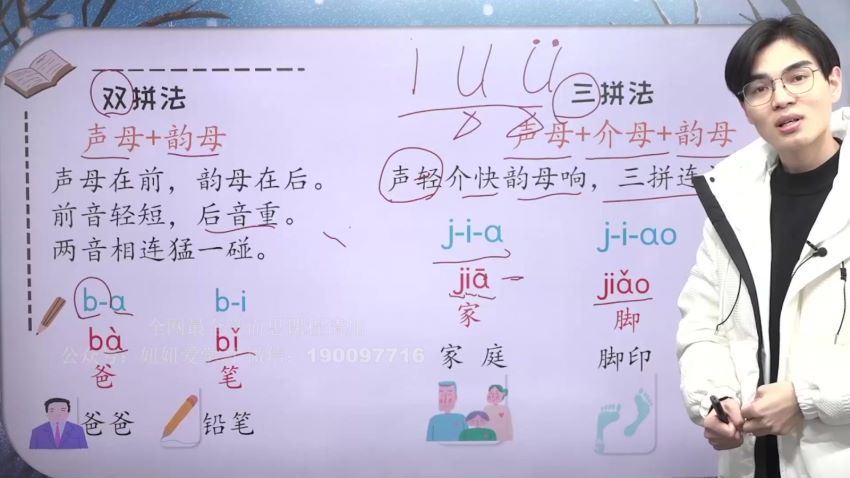 双拼法
声母+韵母
声母在前，韵母在后。
前音轻短，后音重。
两音相连猛一碰。
b-ɑ
b-i
bà
bǐ
爸
笔
爸爸
铅笔
i u ü
三拼法
声母+介母+韵母
声轻介快韵母响，三拼连
j-i-ɑ
j-i-ɑo
jiā
jiǎo
家
脚
家庭
脚印
190097716